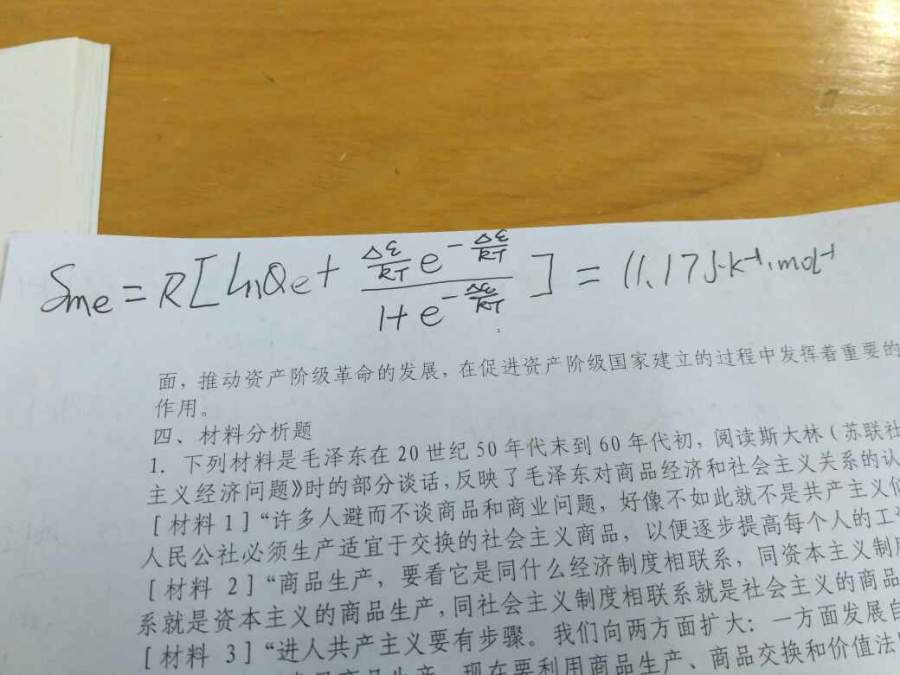 Sme = R[lnQe + (Δε/RT e^(-Δε/RT))/(1+e^(-Δε/RT))] = 11.17 J·K⁻¹·mol⁻¹
面，推动资产阶级革命的发展，在促进资产阶级国家建立的过程中发挥着重要的
作用。
四、材料分析题
1. 下列材料是毛泽东在 20 世纪 50 年代末到 60 年代初，阅读斯大林（苏联社
主义经济问题》时的部分谈话，反映了毛泽东对商品经济和社会主义关系的认
[材料 1]“许多人避而不谈商品和商业问题，好像不如此就不是共产主义似
人民公社必须生产适宜于交换的社会主义商品，以便逐步提高每个人的工资
[材料 2]“商品生产，要看它是同什么经济制度相联系，同资本主义制度
系就是资本主义的商品生产，同社会主义制度相联系就是社会主义的商品
[材料 3]“进人共产主义要有步骤。我们向两方面扩大：一方面发展自
商品生产，现在要利用商品生产、商品交换和价值法